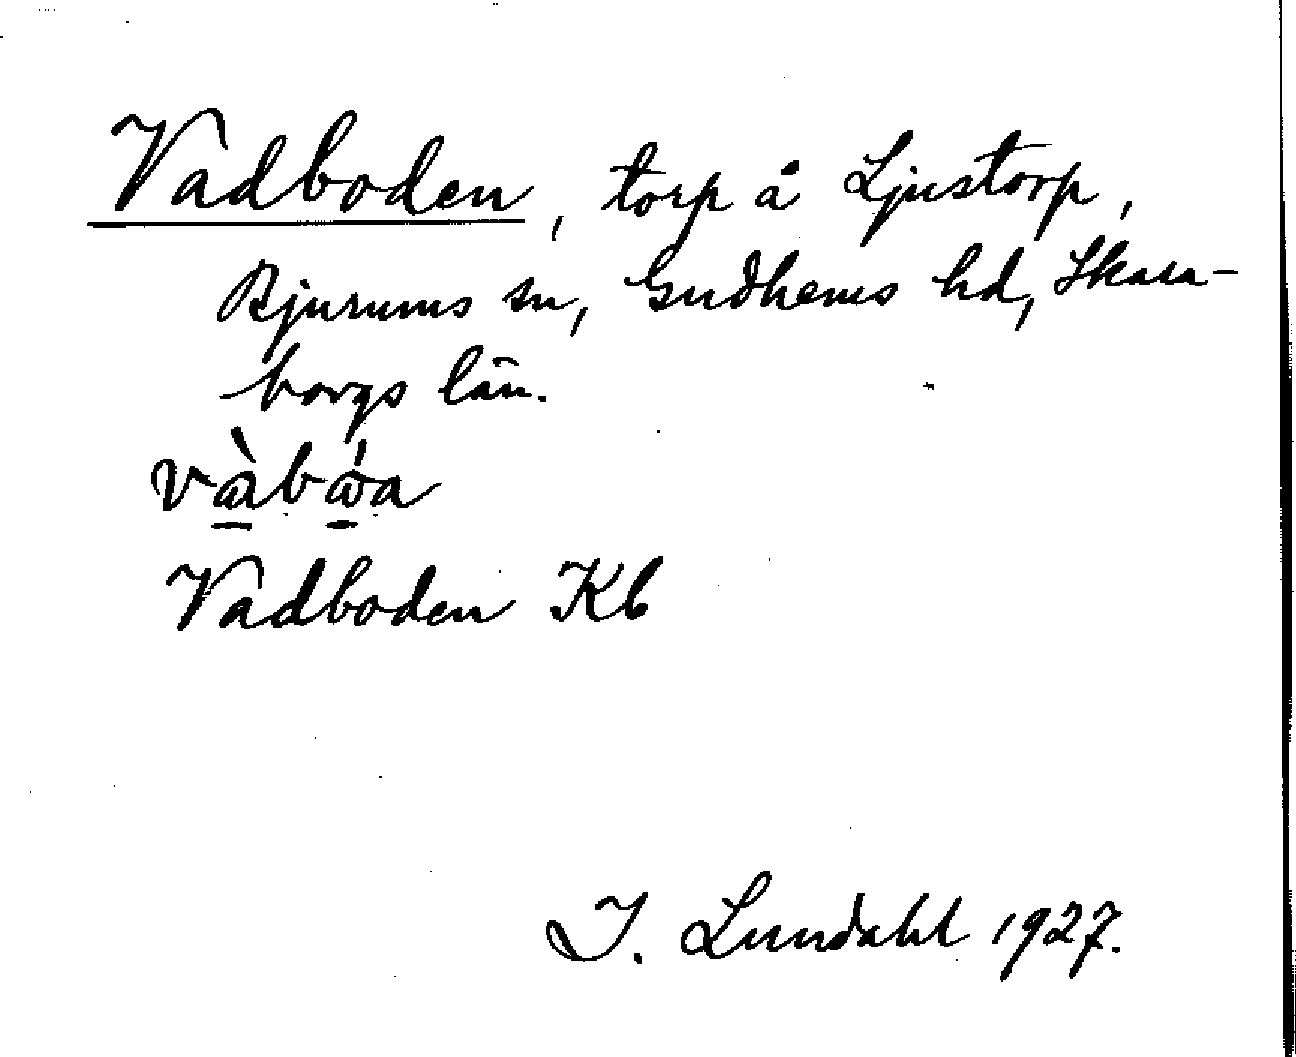 Vadboden, torp å Ljustorp,
Bjurums sn, Gudhems hd, Skara-
borgs län.
Vadboden Kb
I. Lundahl 1927.